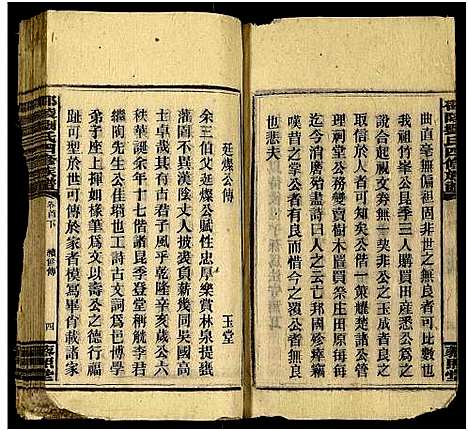 曲直毫無偏祖固非世之無良者可比數也
我祖竹峯公昆季三人購買田産悉公爲之
設合起視文券無一契非公之玉成者于是
取信於人者可知矣公偕一策耀楚諸公管
理祠堂公務變賣樹木置買祭庄田每每
迄今消磨殆盡詩人之云亡邦國殄瘁竊
嘆昔之掌公者有良而惜今之覆公者無良
也悲夫
廷燦公傳
玉堂
余三伯父廷燦公賦性忠厚樂賞林泉提甕
灌園不異漢陰丈人裘被負薪幾同王剡高
士其殆有古君子風乎乾隆辛歲公六
秩華誕余年十七偕諸昆季登堂稱觥李君
繼陶先生公佳婿也工詩古文詞爲邑博學
弟子座上揮如椽筆爲文以壽公之德行福
趾可型於世可傳於家者模寫畢肖載諸家
卷首下
四